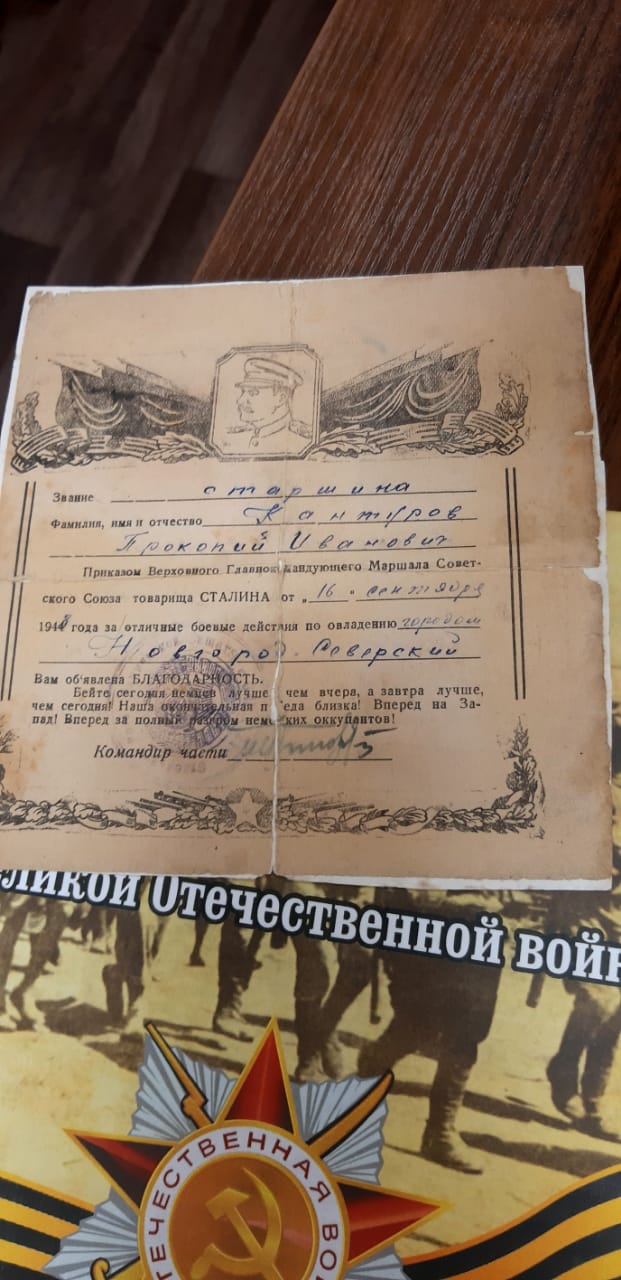 Звание старшина
Фамилия, имя и отчество Кантуров
Прокопий Иванович
Приказом Верховного Главнокомандующего Маршала Совет-
ского Союза товарища СТАЛИНА от „16" сентября
1943 года за отличные боевые действия по овладению городом
Новгород-Северский
Вам об'явлена БЛАГОДАРНОСТЬ.
Бейте сегодня немцев лучше, чем вчера, а завтра лучше,
чем сегодня! Наша окончательная победа близка! Вперед на За-
пад! Вперед за полный разгром немецких оккупантов!
Командир части
ликой Отечественной войн
ТЕЧЕСТВЕННАЯ ВОЙ